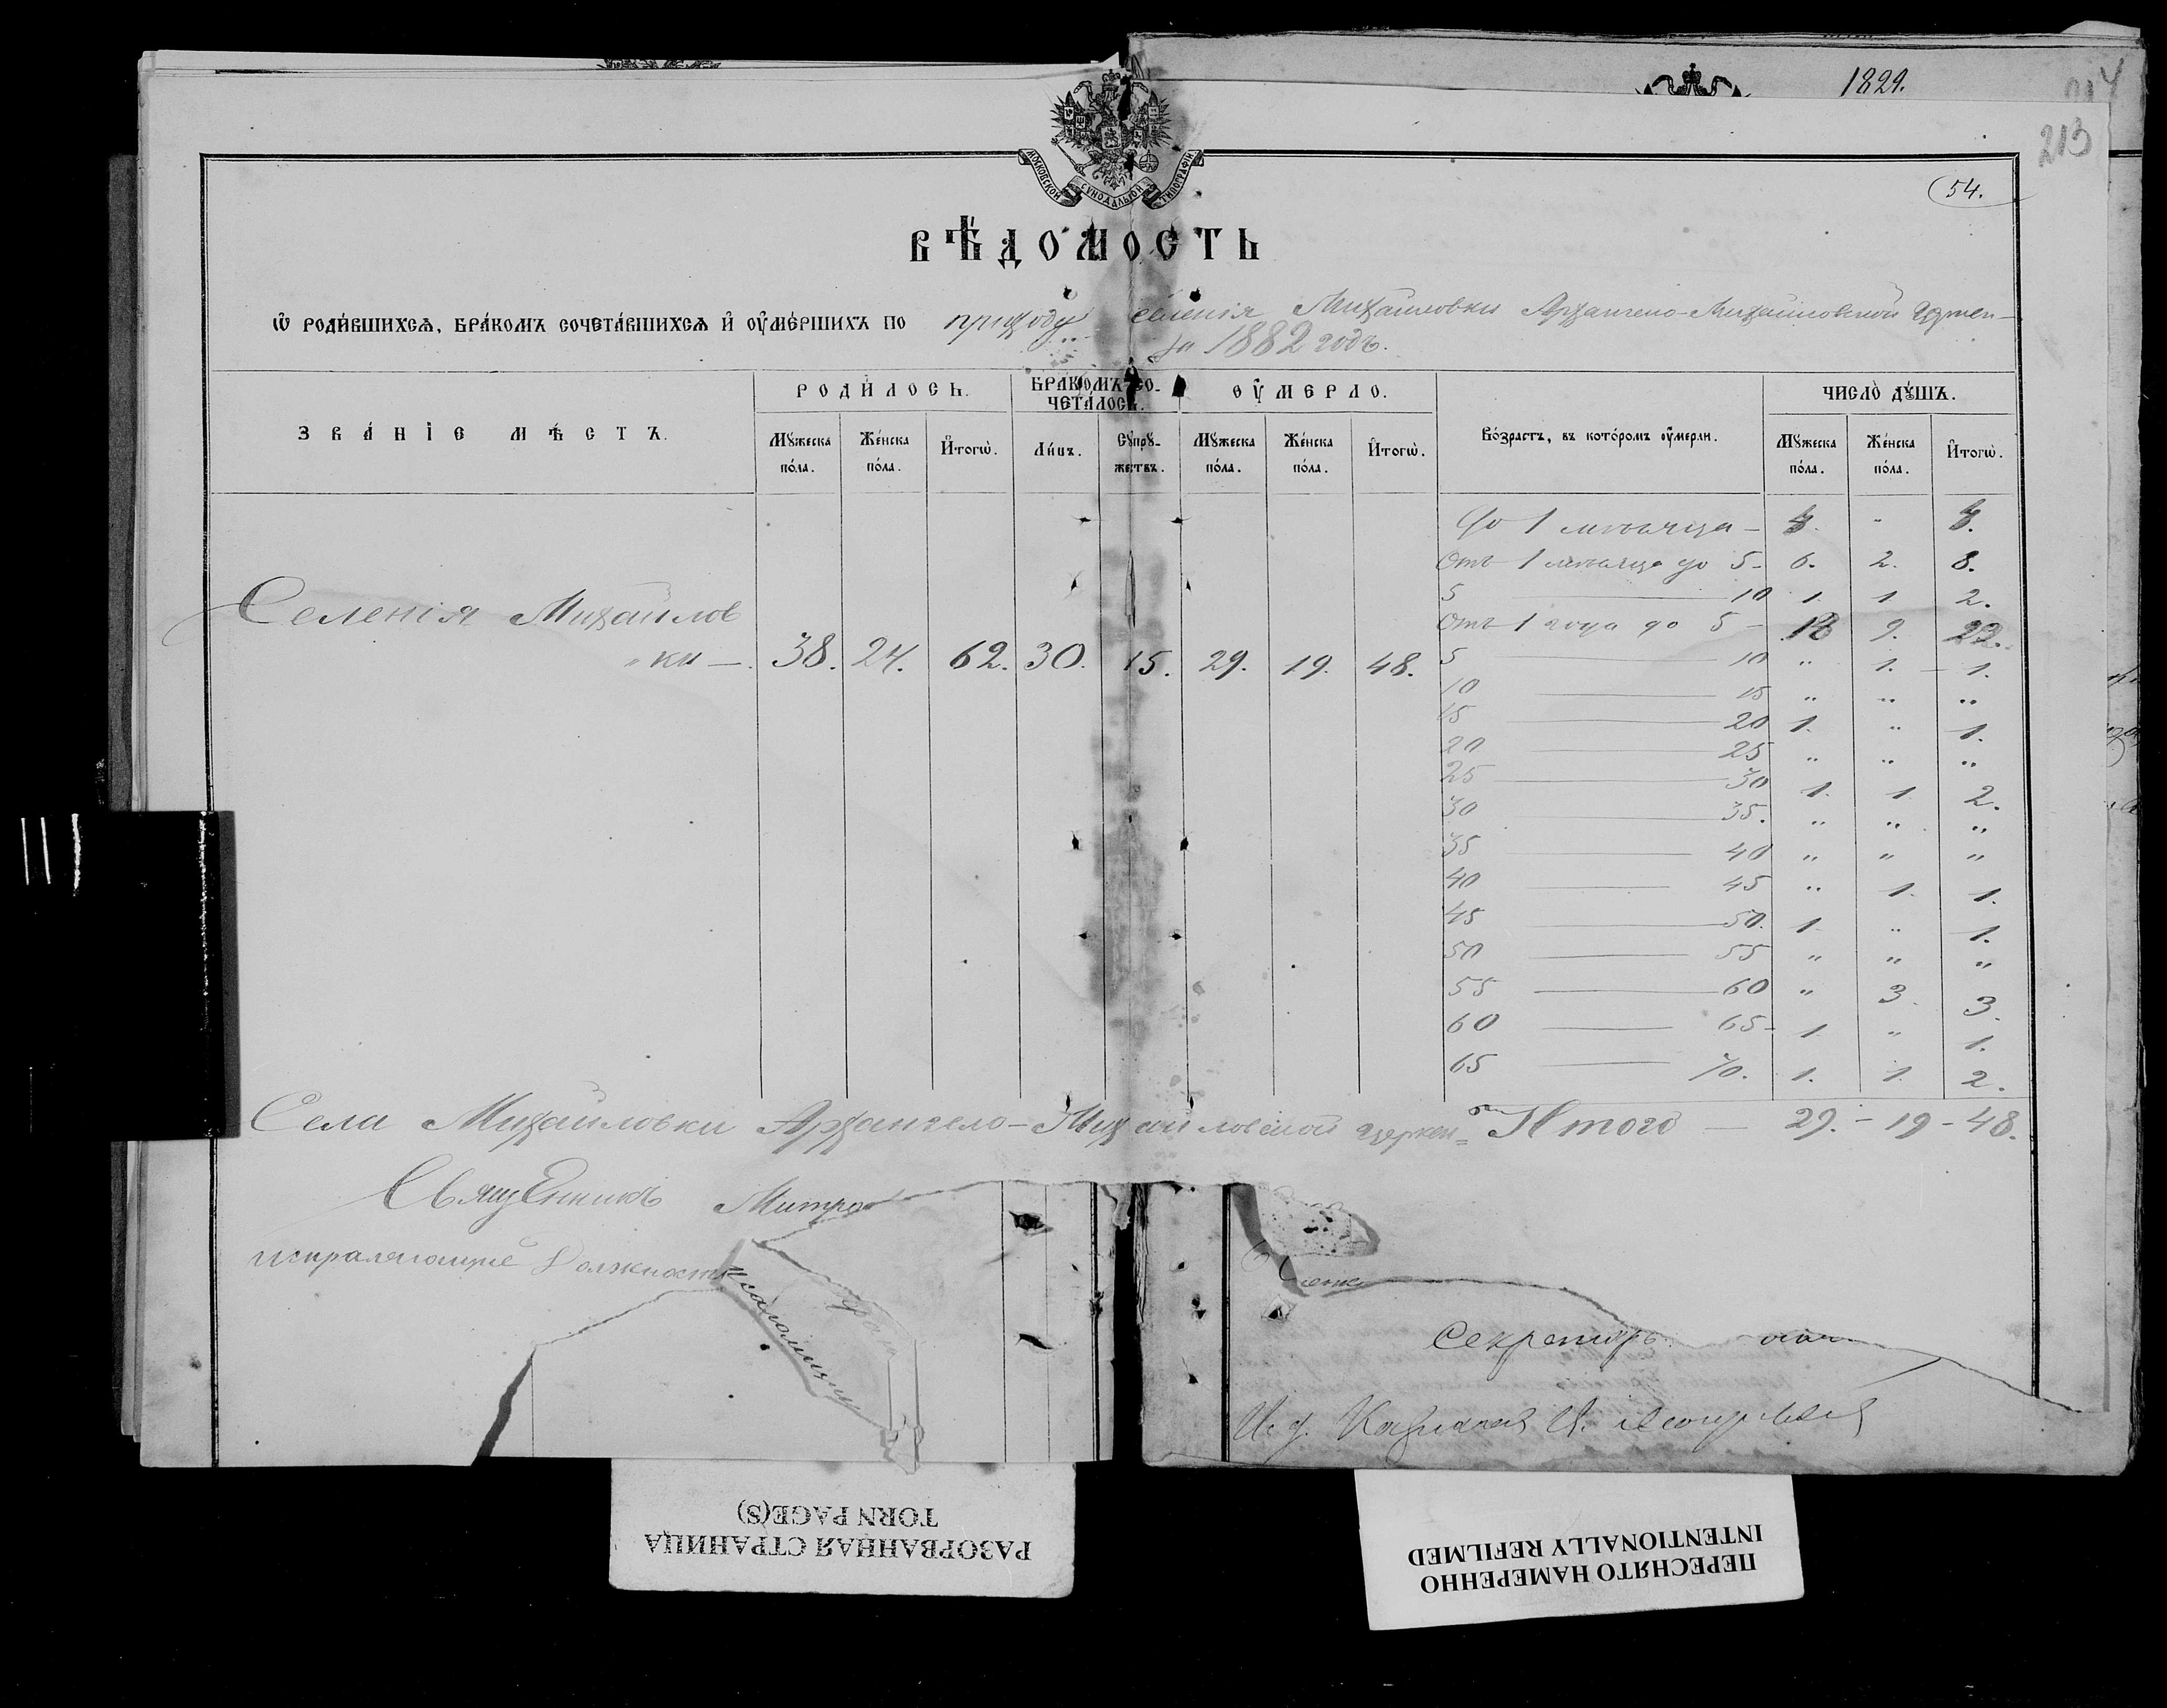 1829.
214
213
МОСКОВСКОЙ СѴНОДАЛЬНОЙ ТИПОГРАФІИ
54.
ВѢ́ДОМОСТЬ
Ѡ҆ РОДИ́ВШИХСѦ, БРА́КОМЪ СОЧЕТА́ВШИХСѦ И҆ ОУ҆МЕ́РШИХЪ ПО приходу селенія Михайловки Архангело-Михайловской церкви
за 1882 годъ.
ЗВА́НІЕ МѢ́СТЪ.
РОДИ́ЛОСЬ.
БРА́КОМЪ СО-
ЧЕТА́ЛОСЬ.
ОУ҆́МЕРЛО.
Во́зрастъ, въ кото́ромъ оу҆́мерли.
ЧИСЛО̀ ДꙊ́ШЪ.
Мꙋ́жеска по́ла.
Же́нска по́ла.
И҆тогѡ̀.
Ли́цъ.
Сꙋпрꙋ́-
жествъ.
Мꙋ́жеска по́ла.
Же́нска по́ла.
И҆тогѡ̀.
Мꙋ́жеска по́ла.
Же́нска по́ла.
И҆тогѡ̀.
Селенія Михайлов
„ки — 38. 24. 62. 30. 15. 29. 19. 48.
До 1 мѣсяца — „
Отъ 1 мѣсяца до 5 - 6. 2. 8.
5 — 10 1. 1. 2.
Отъ 1 года до 5 - 9.
5 — 10 „ 1. — 1.
10 — 15 „ „ „
15 — 20 1. „ 1.
20 — 25 „ „ „
25 — 30 1. 1. 2.
30 — 35. „ „ „
35 — 40 „ „ „
40 — 45 „ 1. 1.
45 — 50. 1. „ 1.
50 — 55 „ „ „
55 — 60 „ 3. 3.
60 — 65 - 1. „ 1.
65 — 70. 1. 1. 2.
Села Михайловки Архангело-Михайловской церкви = Итого — 29. - 19 - 48.
Священникъ Митро
исправляющій должность
псаломщик
Секретарь
И. д.
РАЗОРВАННАЯ СТРАНИЦА
TORN PAGE(S)
ПЕРЕСНЯТО НАМЕРЕННО
INTENTIONALLY REFILMED